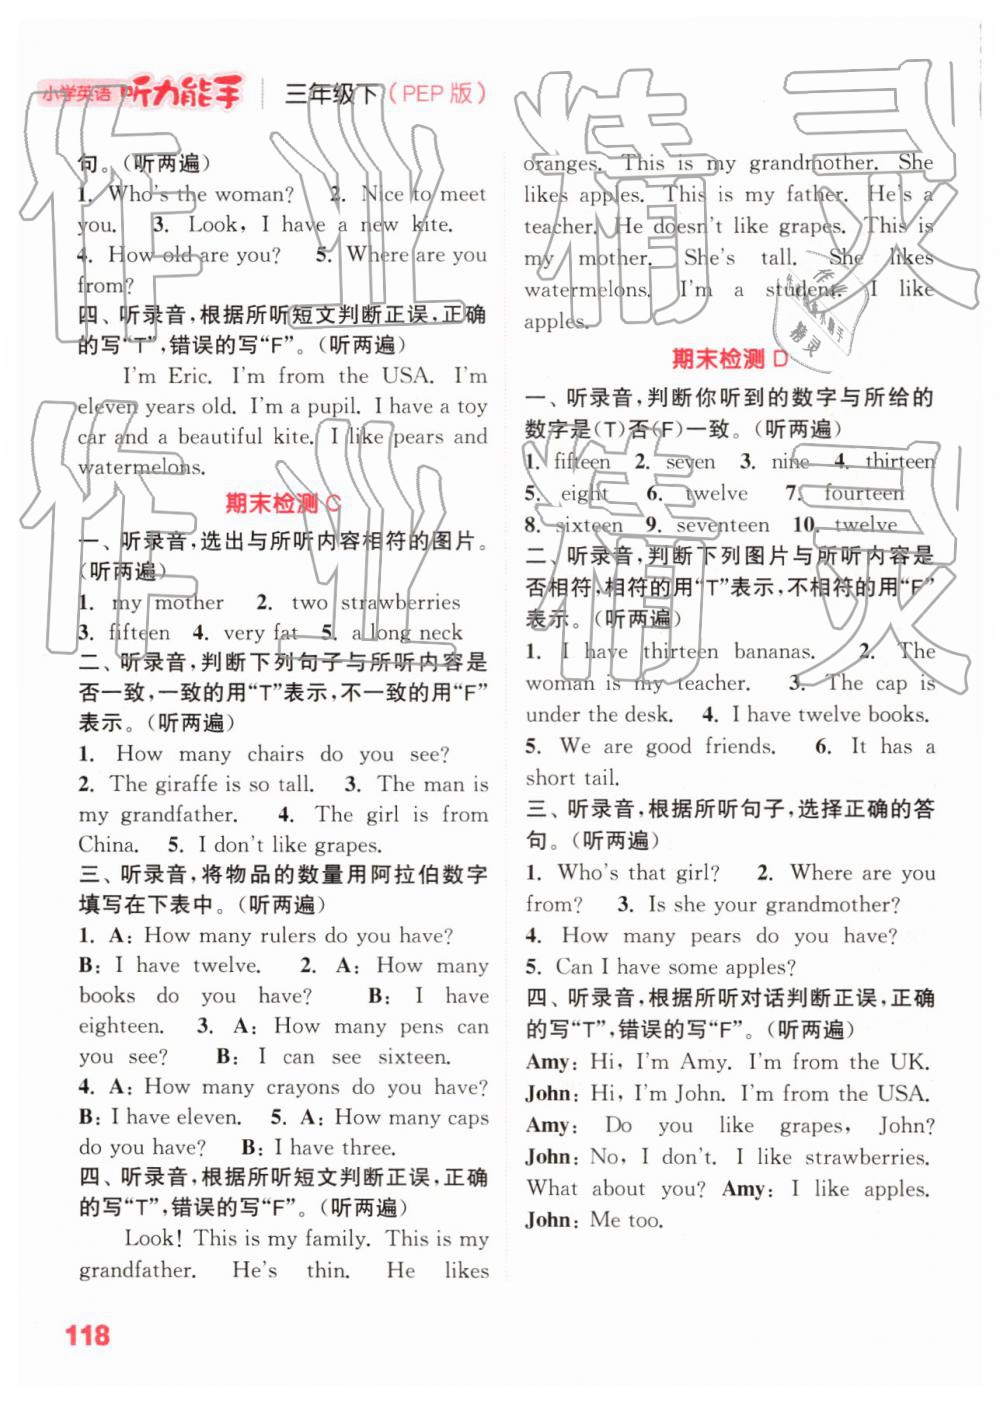 小学英语 听力能手 三年级下(PEP 版)
句。(听两遍)
1. Who's the woman? 2. Nice to meet
you. 3. Look, I have a new kite.
4. How old are you? 5. Where are you
from?
四、听录音,根据所听短文判断正误,正确
的写“T”,错误的写“F”。(听两遍)
I'm Eric. I'm from the USA. I'm
eleven years old. I'm a pupil. I have a toy
car and a beautiful kite. I like pears and
watermelons.
期末检测 C
一、听录音,选出与所听内容相符的图片。
(听两遍)
1. my mother 2. two strawberries
3. fifteen 4. very fat 5. a long neck
二、听录音,判断下列句子与所听内容是
否一致,一致的用“T”表示,不一致的用“F”
表示。(听两遍)
1. How many chairs do you see?
2. The giraffe is so tall. 3. The man is
my grandfather. 4. The girl is from
China. 5. I don't like grapes.
三、听录音,将物品的数量用阿拉伯数字
填写在下表中。(听两遍)
1. A: How many rulers do you have?
B: I have twelve. 2. A: How many
books do you have? B: I have
eighteen. 3. A: How many pens can
you see? B: I can see sixteen.
4. A: How many crayons do you have?
B: I have eleven. 5. A: How many caps
do you have? B: I have three.
四、听录音,根据所听短文判断正误,正确
的写“T”,错误的写“F”。(听两遍)
Look! This is my family. This is my
grandfather. He's thin. He likes
oranges. This is my grandmother. She
likes apples. This is my father. He's a
teacher. He doesn't like grapes. This is
my mother. She's tall. She likes
watermelons. I'm a student. I like
apples.
期末检测 D
一、听录音,判断你听到的数字与所给的
数字是(T)否(F)一致。(听两遍)
1. fifteen 2. seven 3. nine 4. thirteen
5. eight 6. twelve 7. fourteen
8. sixteen 9. seventeen 10. twelve
二、听录音,判断下列图片与所听内容是
否相符,相符的用“T”表示,不相符的用“F”
表示。(听两遍)
1. I have thirteen bananas. 2. The
woman is my teacher. 3. The cap is
under the desk. 4. I have twelve books.
5. We are good friends. 6. It has a
short tail.
三、听录音,根据所听句子,选择正确的答
句。(听两遍)
1. Who's that girl? 2. Where are you
from? 3. Is she your grandmother?
4. How many pears do you have?
5. Can I have some apples?
四、听录音,根据所听对话判断正误,正确
的写“T”,错误的写“F”。(听两遍)
Amy: Hi, I'm Amy. I'm from the UK.
John: Hi, I'm John. I'm from the USA.
Amy: Do you like grapes, John?
John: No, I don't. I like strawberries.
What about you? Amy: I like apples.
John: Me too.
118
作业精灵
作业精灵